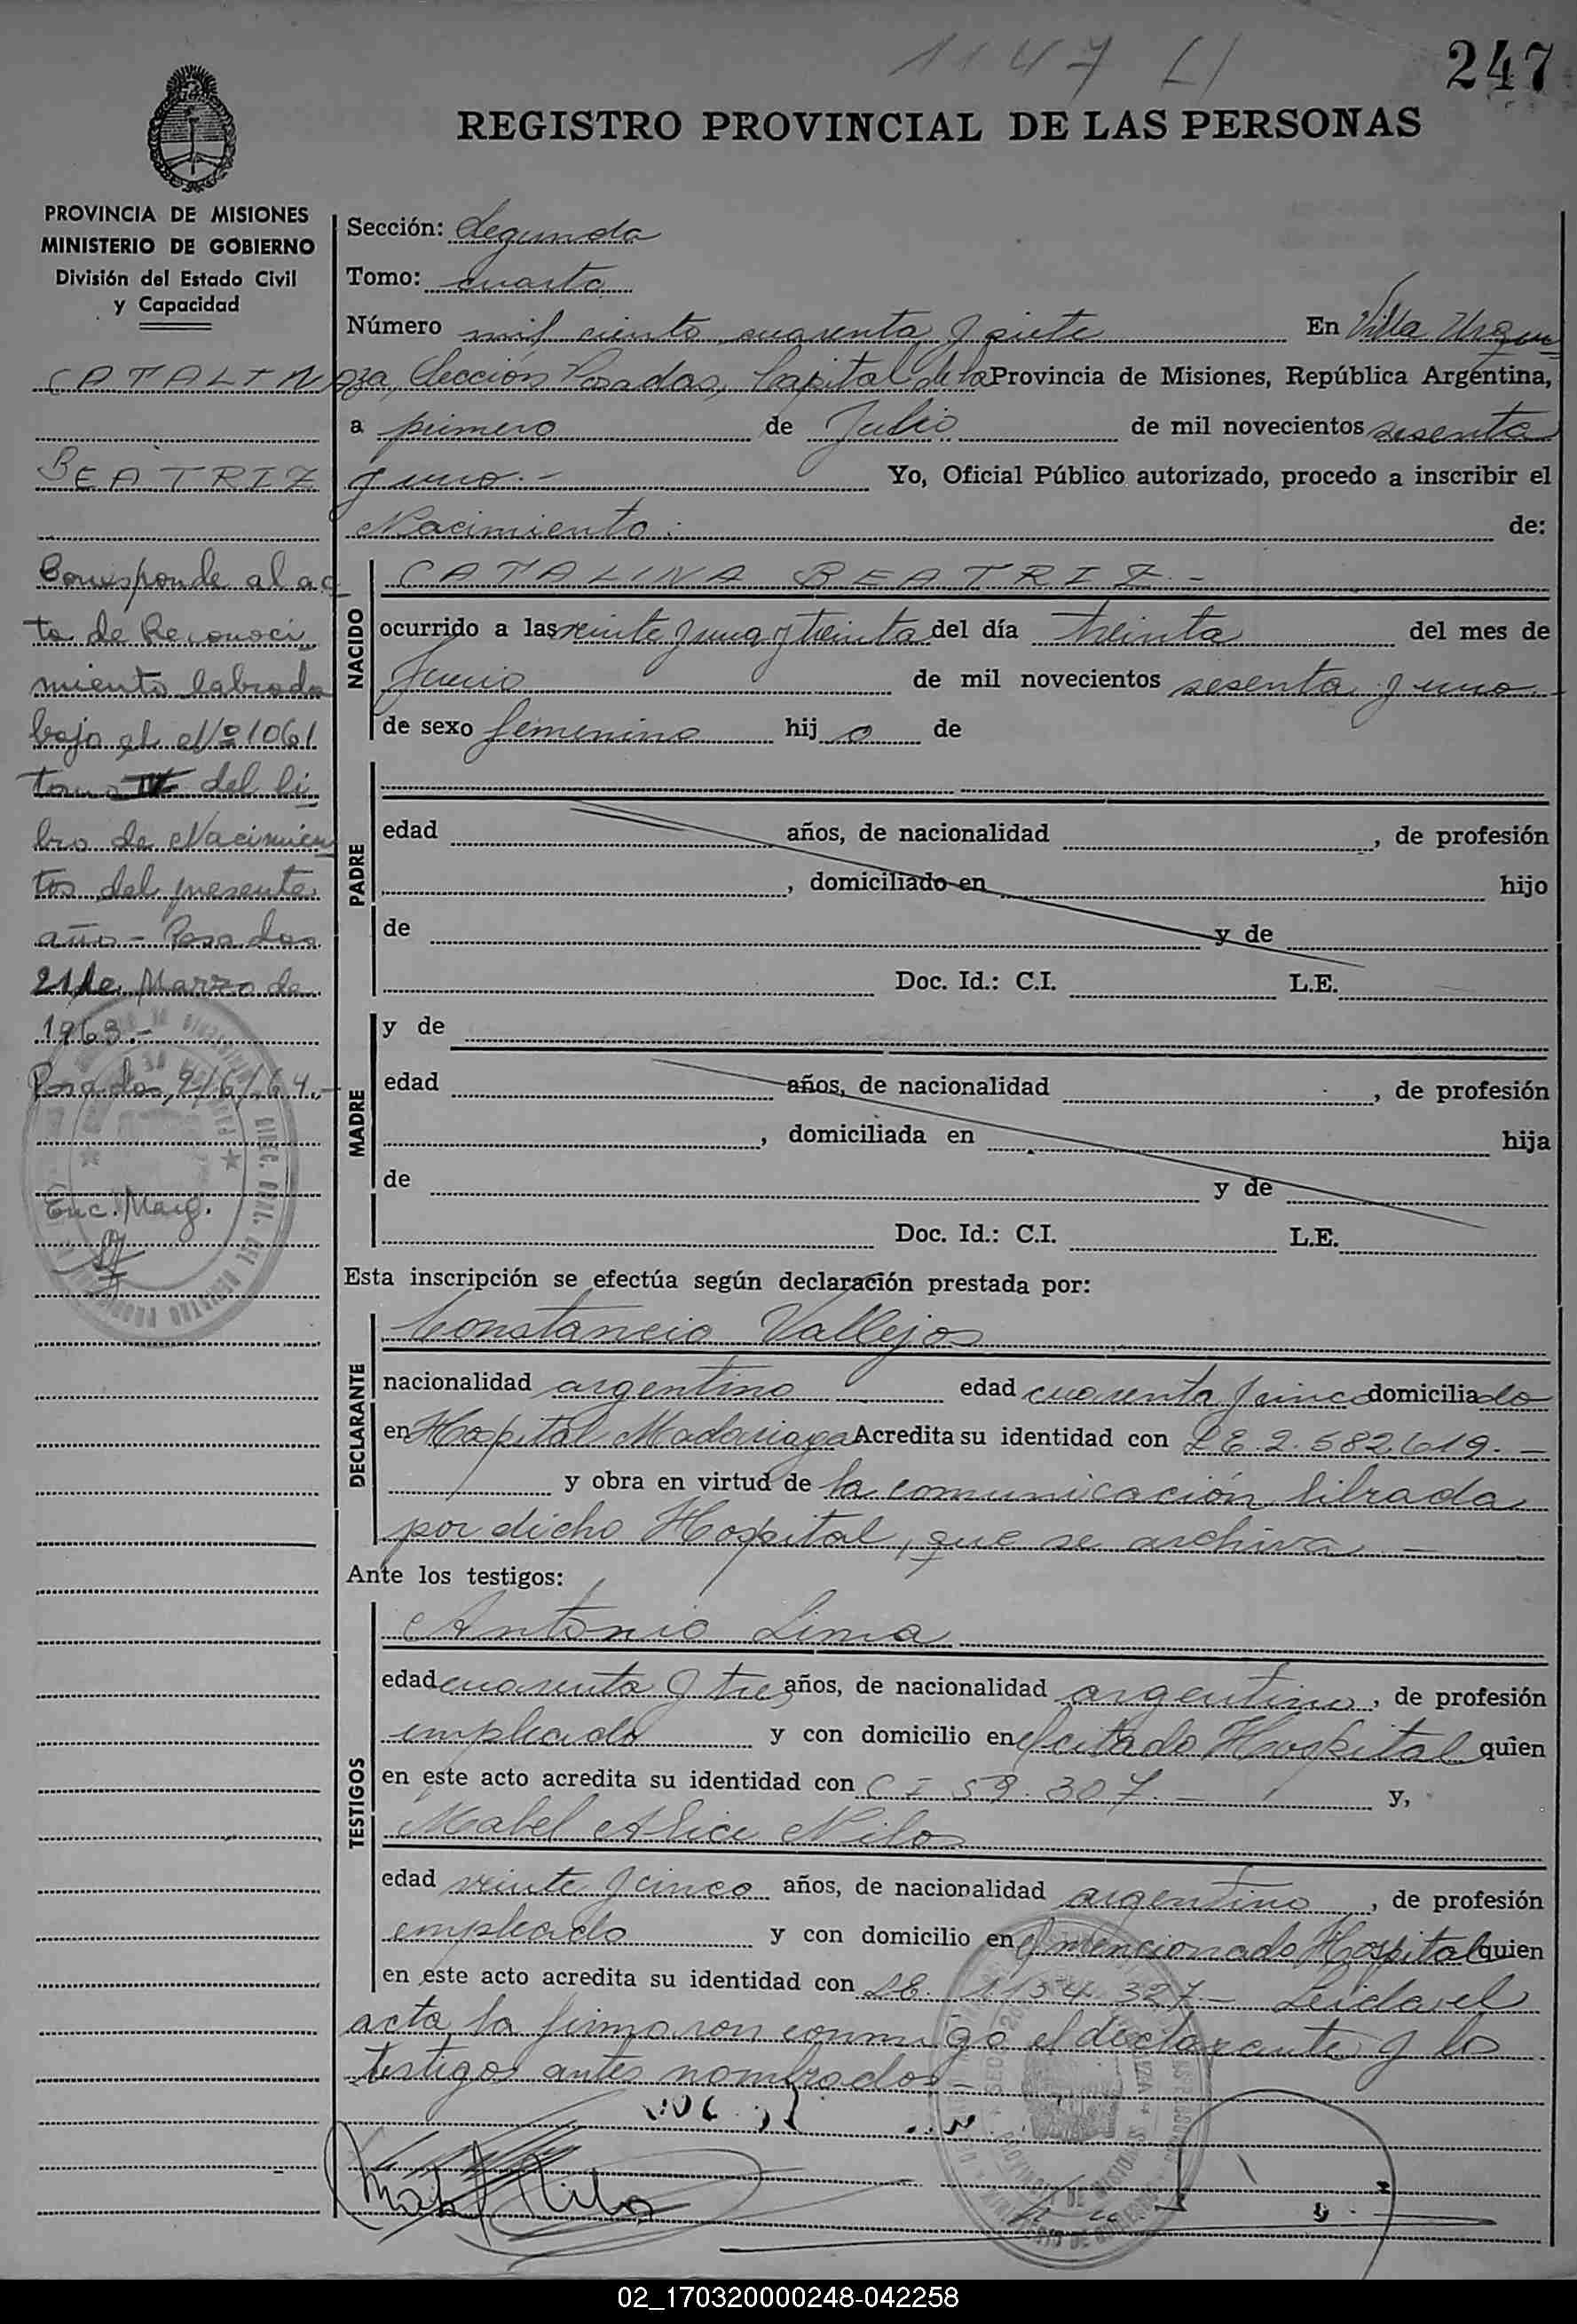 1147 L1
247
REGISTRO PROVINCIAL DE LAS PERSONAS
PROVINCIA DE MISIONES
MINISTERIO DE GOBIERNO
División del Estado Civil
y Capacidad
CATALIN
BEATRIZ
Corresponde al ac
ta de Reconoci
miento labrada
bajo el Nº 1061
tomo IV del li
bro de Nacimien
tos del presente
año - Posadas
21 de Marzo de
1963.-
Posadas, 2/6/64.-
Enc. Marg.
Sección: Segunda
Tomo: cuarto
Número mil ciento cuarenta y siete En Villa Urqui
za, Sección Posadas, Capital de la Provincia de Misiones, República Argentina,
a primero de Julio de mil novecientos sesenta
y uno.- Yo, Oficial Público autorizado, procedo a inscribir el
Nacimiento: de:
NACIDO
CATALINA BEATRIZ.-
ocurrido a las veinte y una y treinta del día treinta del mes de
Junio de mil novecientos sesenta y uno.-
de sexo femenino hij a de
PADRE
edad años, de nacionalidad , de profesión
, domiciliado en hijo
de y de
Doc. Id.: C.I. L.E.
MADRE
y de
edad años, de nacionalidad , de profesión
, domiciliada en hija
de y de
Doc. Id.: C.I. L.E.
Esta inscripción se efectúa según declaración prestada por:
DECLARANTE
Constancio Vallejos
nacionalidad argentino edad cuarenta y cinco domiciliado
en Hospital Madariaga Acredita su identidad con LE 2.582.619.-
y obra en virtud de la comunicación librada
por dicho Hospital, que se archiva.-
Ante los testigos:
TESTIGOS
Antonio Lima
edad cuarenta y tres años, de nacionalidad argentino, de profesión
empleado y con domicilio en el citado Hospital quien
en este acto acredita su identidad con C I 59.307.- y,
Mabel Alice Nilo
edad veinte y cinco años, de nacionalidad argentino, de profesión
empleado y con domicilio en el mencionado Hospital quien
en este acto acredita su identidad con LE. 1134 327- Leída el
acta, la firmaron conmigo el declarante y los
testigos antes nombrados.-
Mabel Nilo
02_170320000248-042258